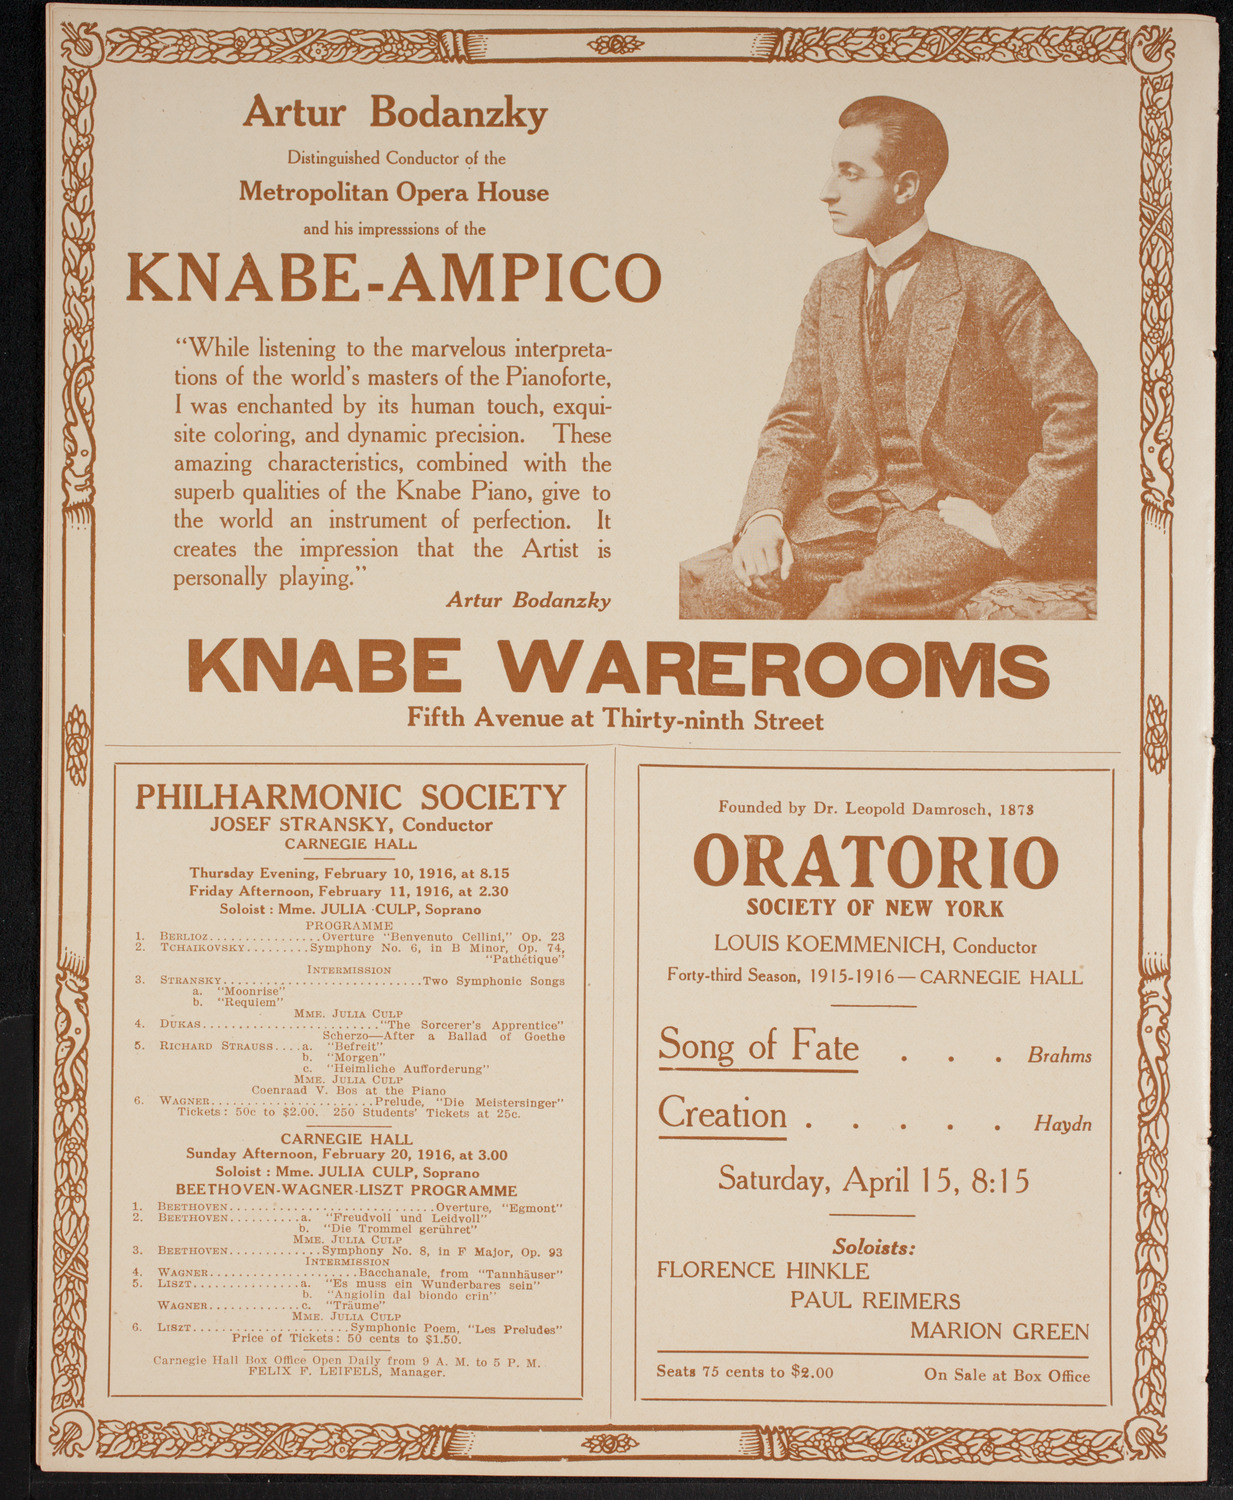 Artur Bodanzky
Distinguished Conductor of the
Metropolitan Opera House
and his impresssions of the
KNABE-AMPICO
“While listening to the marvelous interpreta-
tions of the world's masters of the Pianoforte,
I was enchanted by its human touch, exqui-
site coloring, and dynamic precision. These
amazing characteristics, combined with the
superb qualities of the Knabe Piano, give to
the world an instrument of perfection. It
creates the impression that the Artist is
personally playing.”
Artur Bodanzky
KNABE WAREROOMS
Fifth Avenue at Thirty-ninth Street
PHILHARMONIC SOCIETY
JOSEF STRANSKY, Conductor
CARNEGIE HALL
Thursday Evening, February 10, 1916, at 8.15
Friday Afternoon, February 11, 1916, at 2.30
Soloist : Mme. JULIA CULP, Soprano
PROGRAMME
1. BERLIOZ...............Overture “Benvenuto Cellini,” Op. 23
2. TCHAIKOVSKY.........Symphony No. 6, in B Minor, Op. 74,
“Pathétique”
INTERMISSION
3. STRANSKY............................Two Symphonic Songs
a. “Moonrise”
b. “Requiem”
MME. JULIA CULP
4. DUKAS........................“The Sorcerer's Apprentice”
Scherzo—After a Ballad of Goethe
5. RICHARD STRAUSS....a. “Befreit”
b. “Morgen”
c. “Heimliche Aufforderung”
MME. JULIA CULP
Coenraad V. Bos at the Piano
6. WAGNER......................Prelude, “Die Meistersinger”
Tickets: 50c to $2.00. 250 Students' Tickets at 25c.
CARNEGIE HALL
Sunday Afternoon, February 20, 1916, at 3.00
Soloist : Mme. JULIA CULP, Soprano
BEETHOVEN-WAGNER-LISZT PROGRAMME
1. BEETHOVEN............................Overture, “Egmont”
2. BEETHOVEN..........a. “Freudvoll und Leidvoll”
b. “Die Trommel gerühret”
MME. JULIA CULP
3. BEETHOVEN.............Symphony No. 8, in F Major, Op. 93
INTERMISSION
4. WAGNER....................Bacchanale, from “Tannhäuser”
5. LISZT...............a. “Es muss ein Wunderbares sein”
b. “Angiolin dal biondo crin”
WAGNER.............c. “Träume”
MME. JULIA CULP
6. LISZT.....................Symphonic Poem, “Les Preludes”
Price of Tickets: 50 cents to $1.50.
Carnegie Hall Box Office Open Daily from 9 A. M. to 5 P. M.
FELIX F. LEIFELS, Manager.
Founded by Dr. Leopold Damrosch, 1873
ORATORIO
SOCIETY OF NEW YORK
LOUIS KOEMMENICH, Conductor
Forty-third Season, 1915-1916—CARNEGIE HALL
Song of Fate . . . Brahms
Creation . . . . . Haydn
Saturday, April 15, 8:15
Soloists:
FLORENCE HINKLE
PAUL REIMERS
MARION GREEN
Seats 75 cents to $2.00 On Sale at Box Office